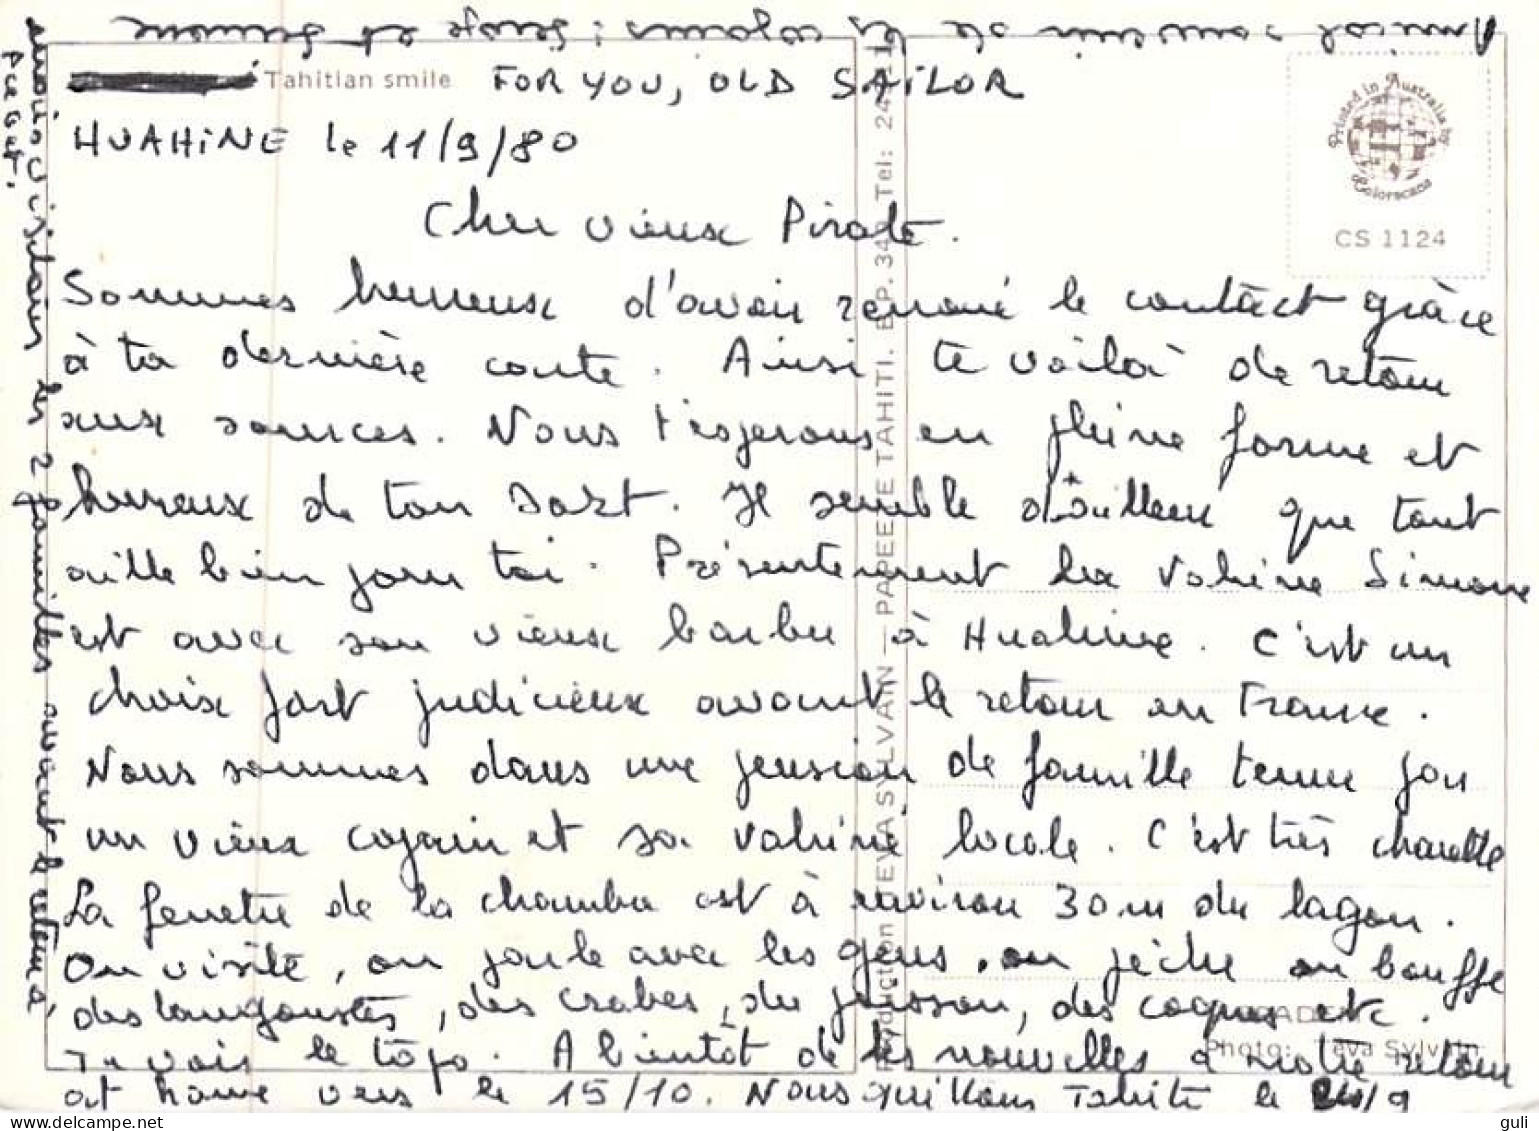 Tahitian smile FOR YOU, OLD SAILOR
HUAHINE le 11/9/80
Cher vieux Pirate.
Sommes heureux d'avoir renoué le contact grâce
à ta dernière carte. Ainsi te voilà de retour
aux sources. Nous t'espérons en pleine forme et
heureux de ton sort. Il semble d'ailleurs que tout
aille bien pour toi. Présentement la Vahiné Simone
est avec son vieux barbu à Huahine. C'est un
choix fort judicieux avant le retour en France.
Nous sommes dans une pension de famille tenue par
un vieux copain et sa vahiné locale. C'est très chouette
La fenêtre de la chambre est à environ 30 m du lagon.
On visite, on parle avec les gens, on pêche on bouffe
des langoustes, des crabes, du poisson, des coques etc.
Tu vois le topo. A bientôt de tes nouvelles à notre retour
at home vers le 15/10. Nous quittons Tahiti le 24/9
après visiter les 2 familles avant le retour à
Amical souvenir de tes copains : Serge et Simone
Printed in Australia by
Colorscans
CS 1124
Production TEVA SYLVAIN — PAPEETE TAHITI. B.P. 34 Tel: 24
Photo: Teva Sylvain
guli